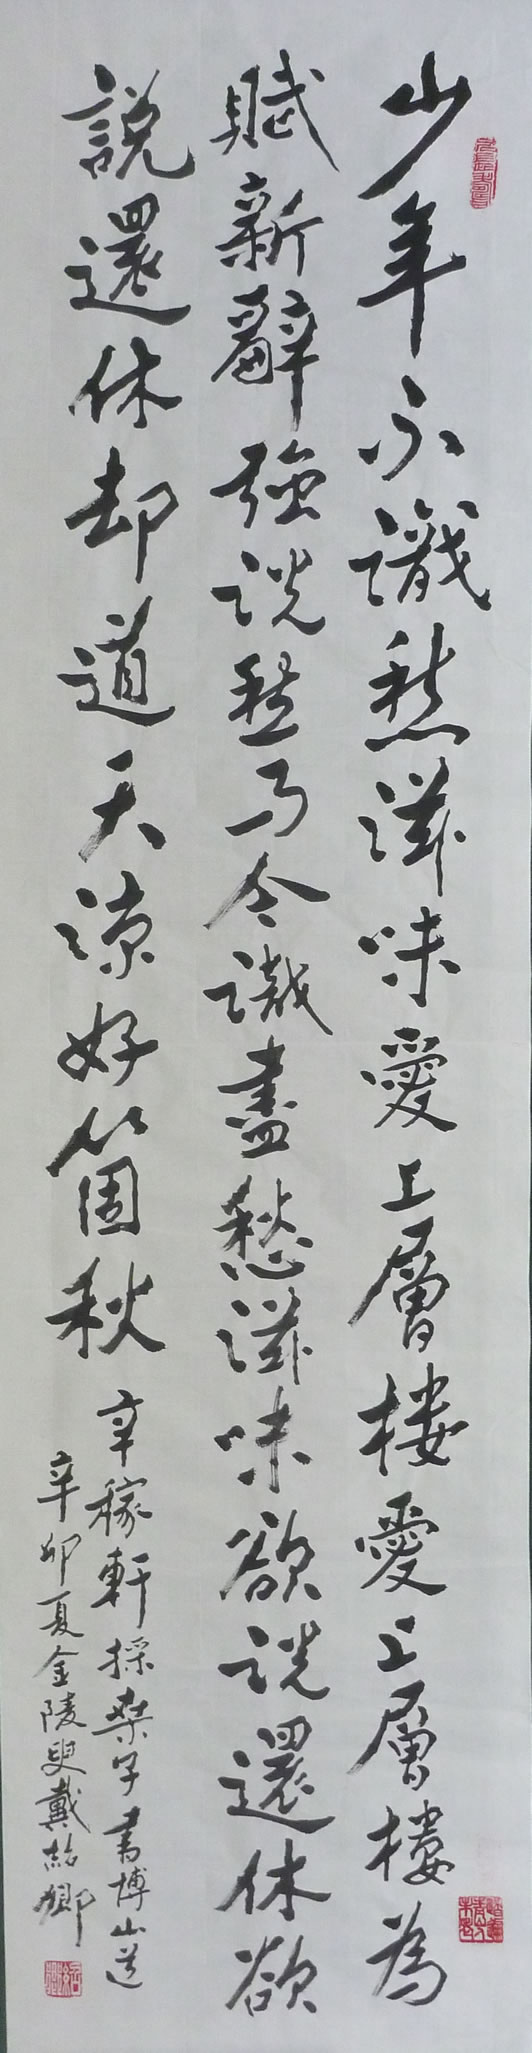 少年不識愁滋味愛上層樓愛上層樓為
賦新辭強説愁而今識盡愁滋味欲説還休欲
說還休却道天涼好箇秋
辛稼軒採桑子書博山道
辛卯夏金陵叟戴紹卿